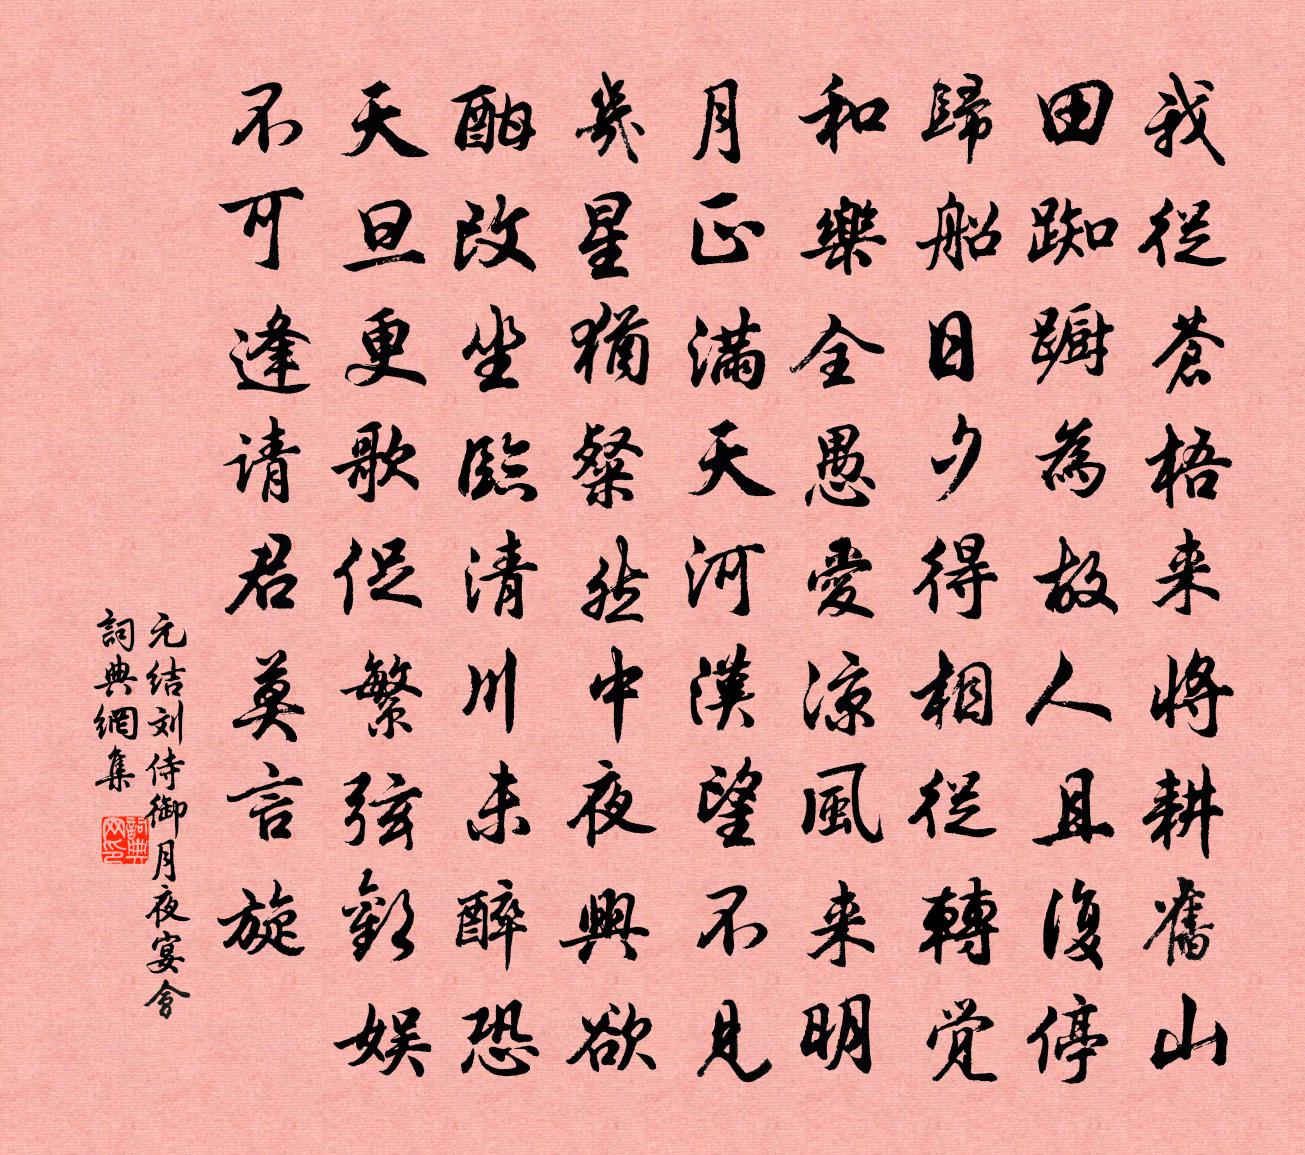 我從蒼梧来将耕舊山
田踟躕為故人且復停
歸船日夕得相從轉覚
和樂全愚愛凉風来明
月正滿天河漢望不見
幾星猶粲然中夜興欲
酣改坐臨清川未醉恐
天旦更歌促繁弦歡娱
不可逢请君莫言旋
元结刘侍御月夜宴會
詞典網集
詞典网印